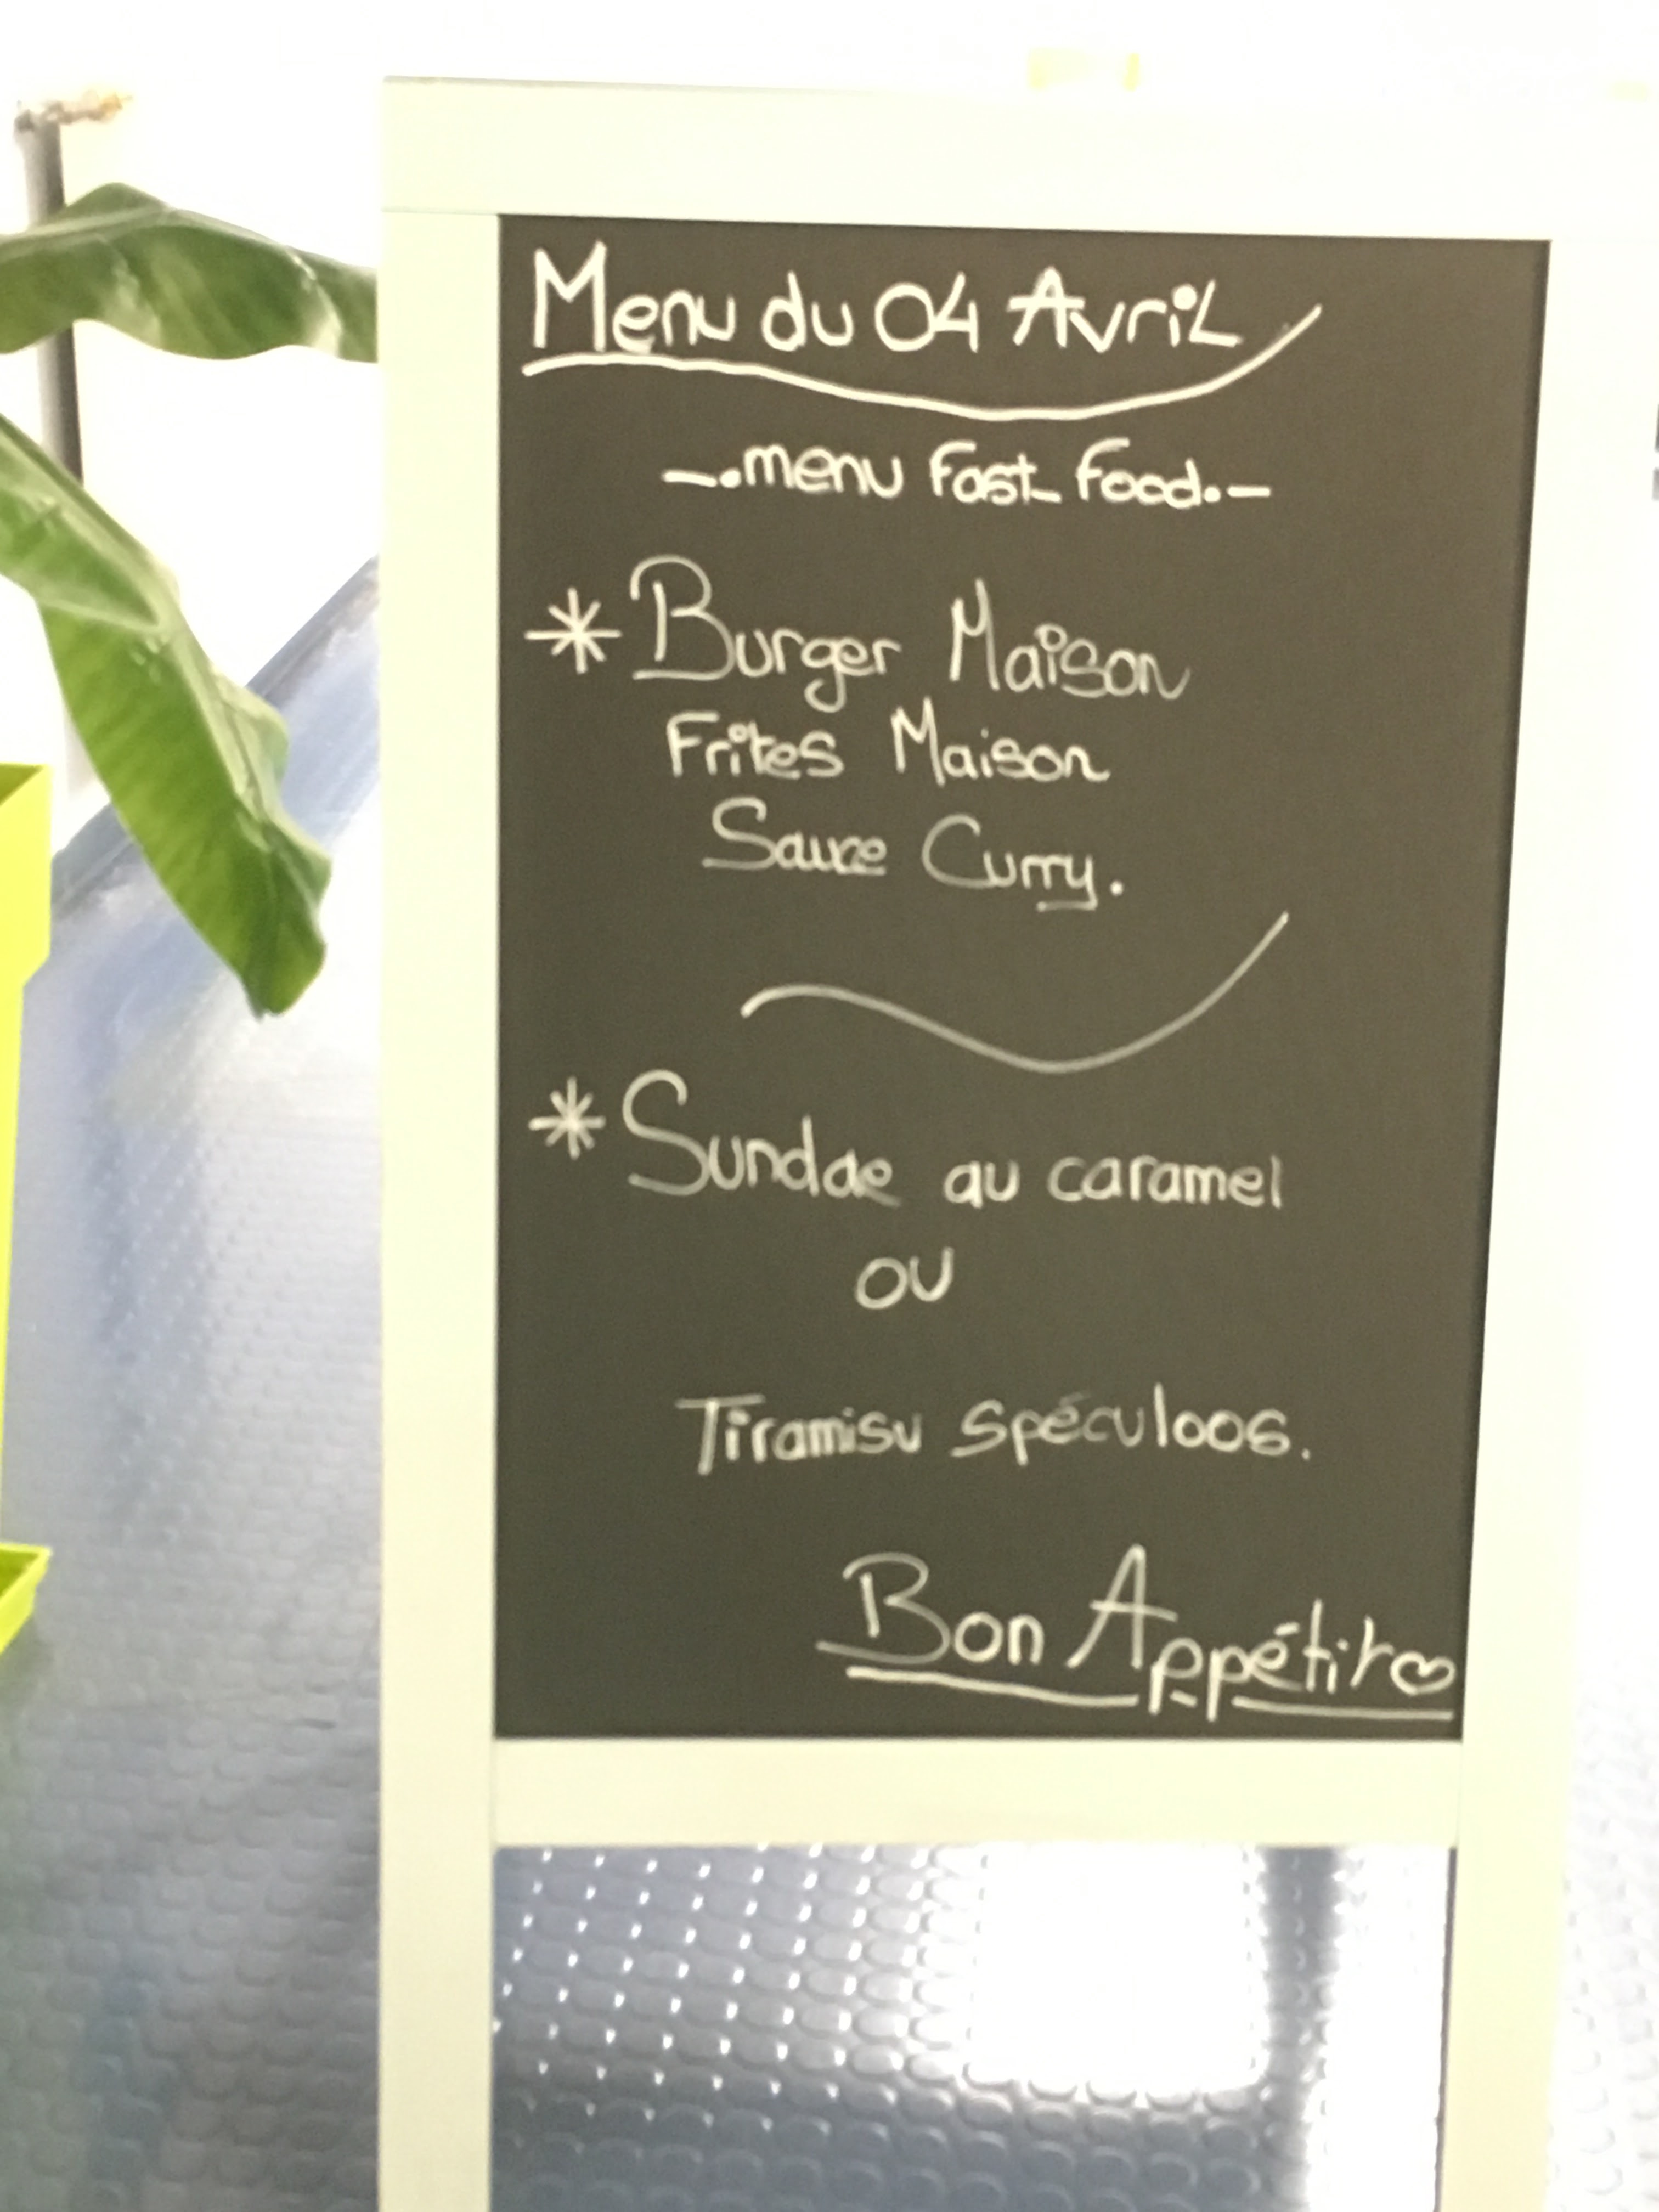 Menu du 04 Avril
-.menu Fast Food.-
* Burger Maison
Frites Maison
Sauce Curry.
* Sundae au caramel
ou
Tiramisu spéculoos.
Bon Appétit ♡